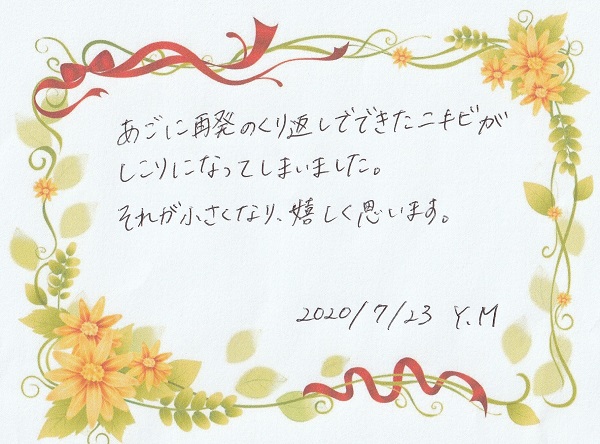 あごに再発のくり返しでできたニキビが
しこりになってしまいました。
それが小さくなり、嬉しく思います。
2020/7/23 Y.M